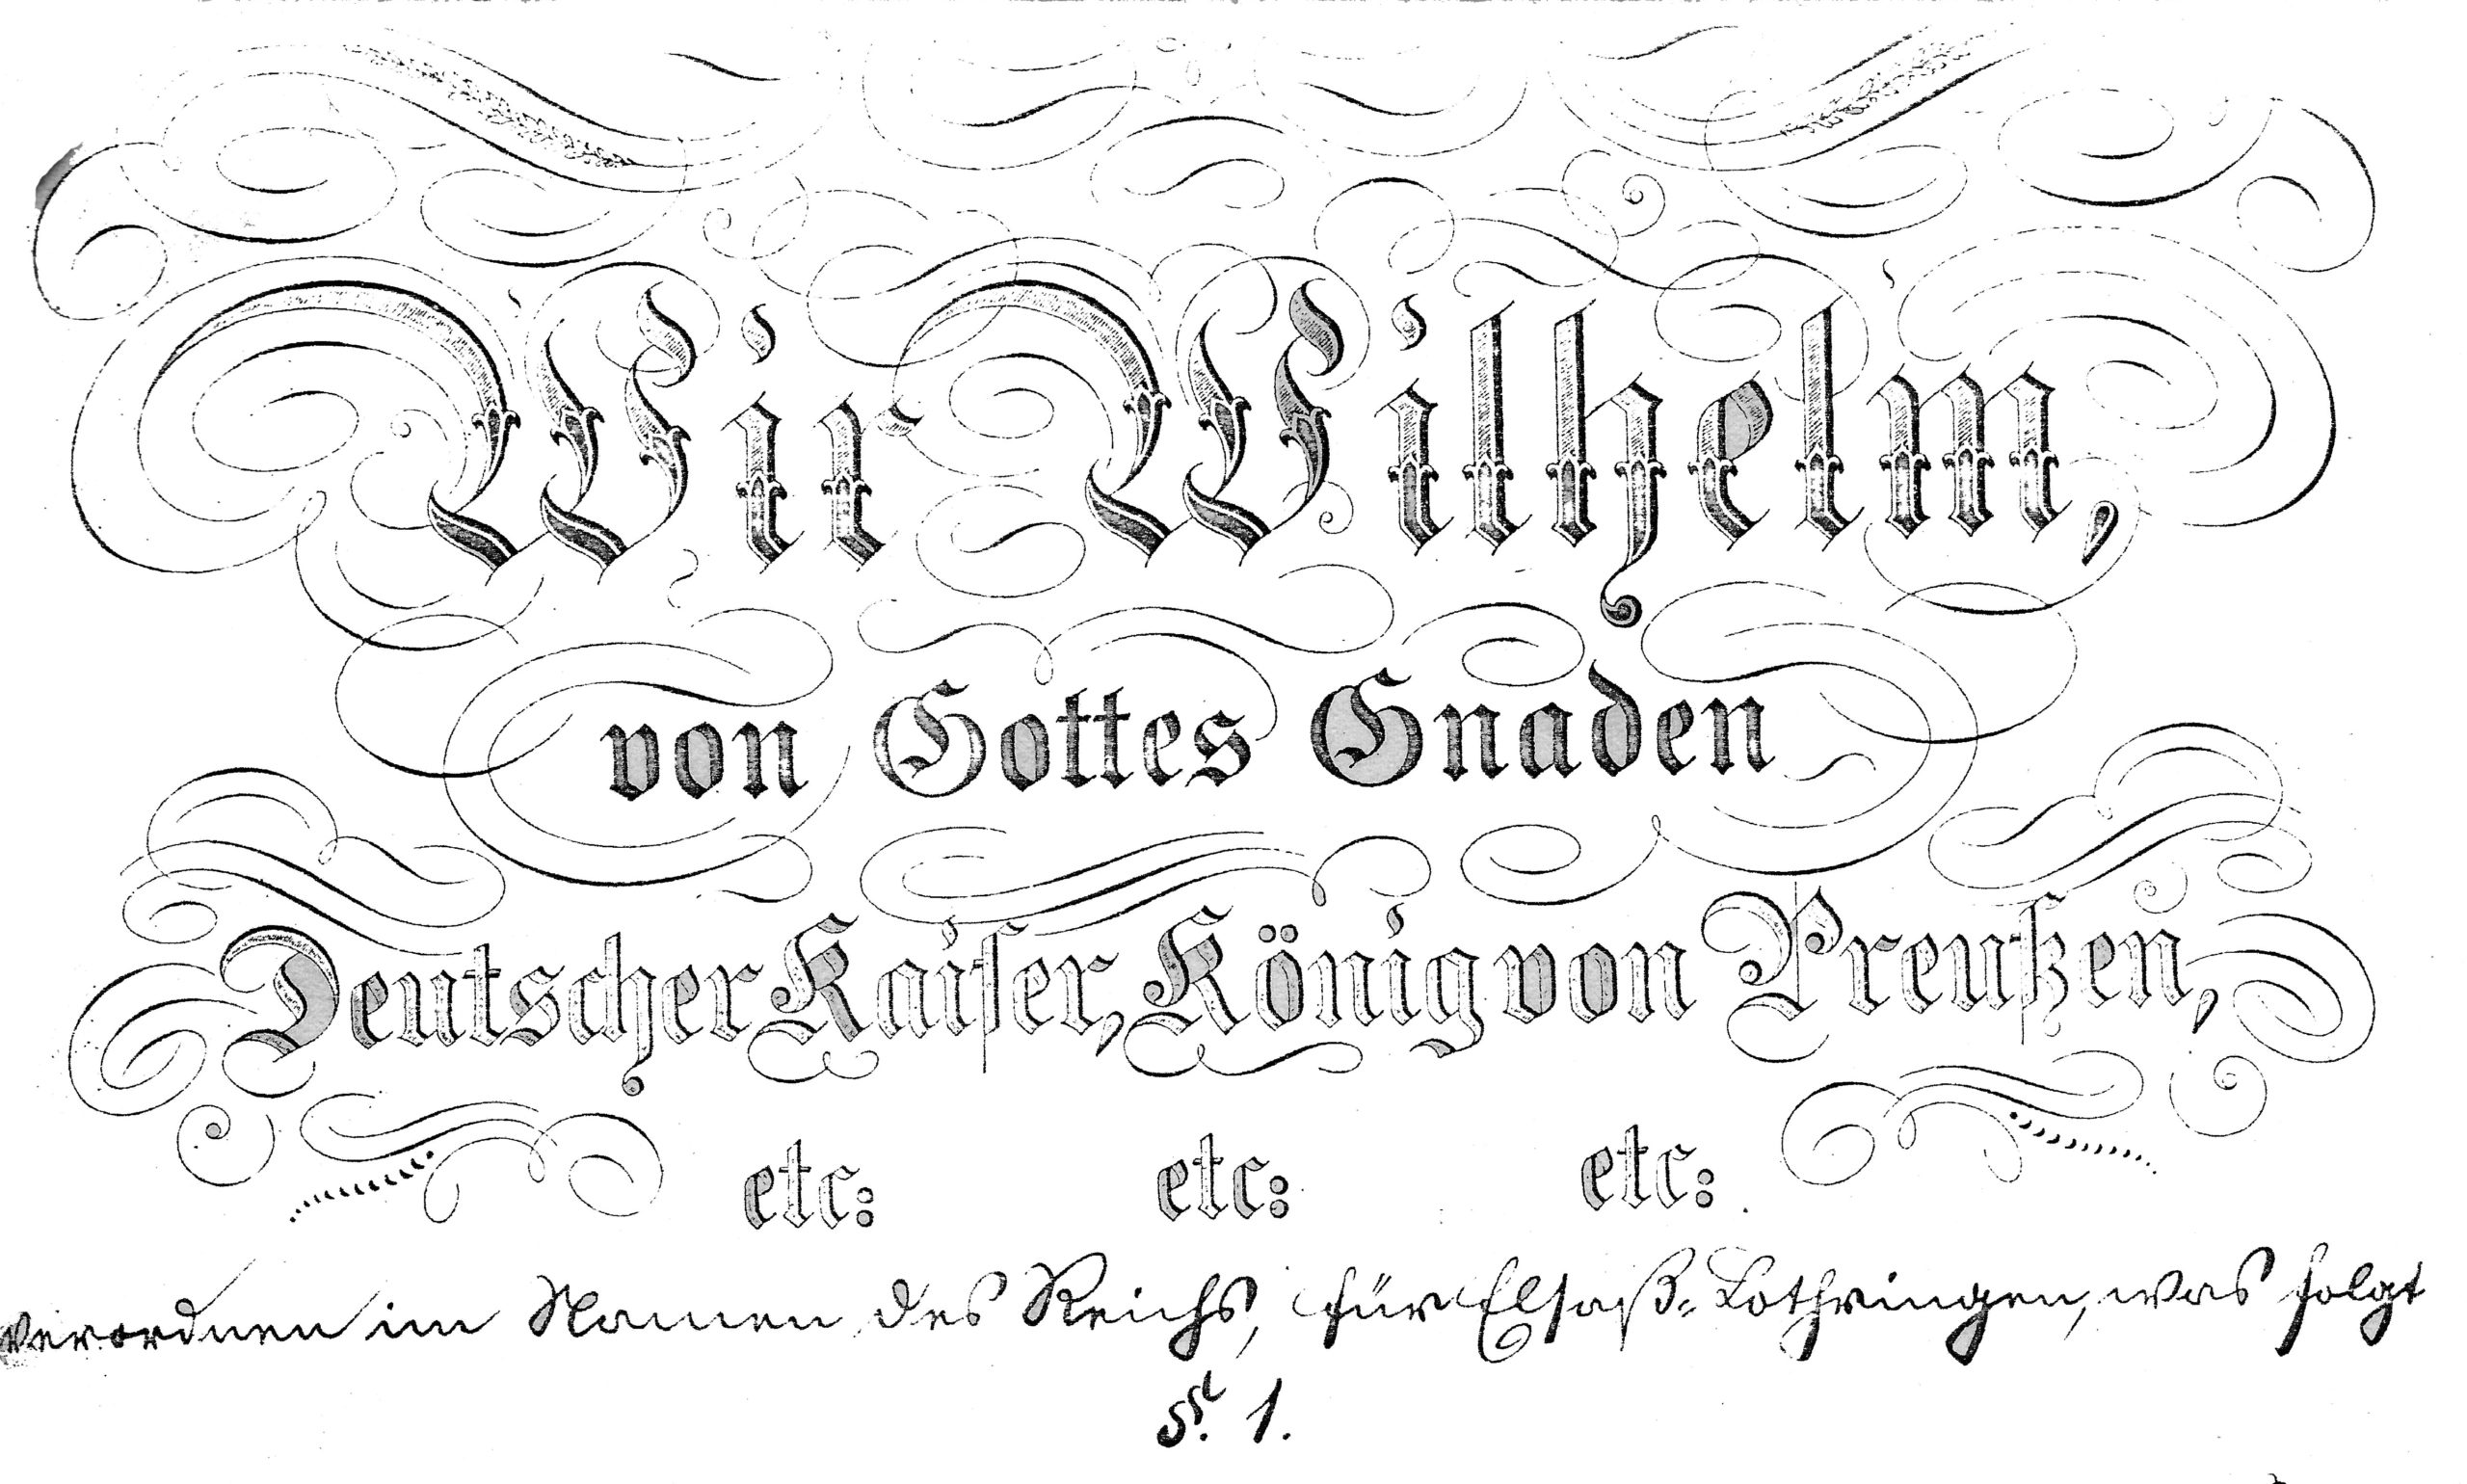 Wir Wilhelm,
von Gottes Gnaden
Deutscher Kaiser, König von Preußen,
etc: etc: etc:
verordnen im Namen des Reichs, für Elsaß-Lothringen, was folgt
§. 1.